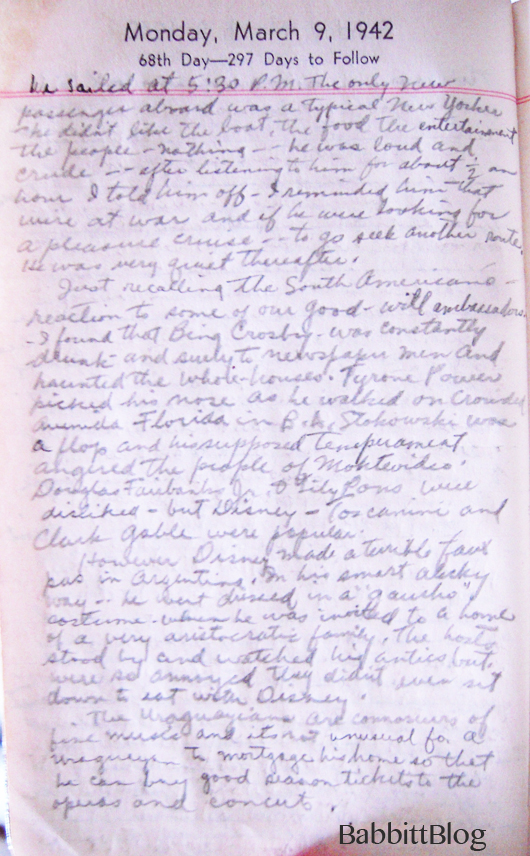 Monday, March 9, 1942
68th Day—297 Days to Follow
We sailed at 5:30 P.M. The only new
passenger aboard was a typical New Yorker
- he didn't like the boat, the food the entertainment
the people - nothing -- he was loud and
crude -- after listening to him for about ½ an
hour I told him off - I reminded him that
were at war and if he were looking for
a pleasure cruise -- to go seek another route.
He was very quiet thereafter.
Just recalling the South Americans -
reaction to some of our good-will ambassadors
- I found that Bing Crosby was constantly
drunk - and surly to newspaper men and
haunted the whore-houses. Tyrone Power
picked his nose as he walked on crowded
avenida Florida in B.A. Stokowski was
a flop and his supposed temperament
angered the people of Montevideo.
Douglas Fairbanks Jr. & Lily Pons were
disliked - but Disney - Toscanini and
Clark Gable were popular.
However Disney made a terrible faux
pas in Argentina. In his smart alecky
way -- he went dressed in a "gaucho"
costume when he was invited to a home
of a very aristocratic family. The hosts
stood by and watched his antics but
were so annoyed they didn't even sit
down to eat with Disney.
The Uraguayians are connosiers of
fine music and its not unusual for a
uraguayan to mortgage his home so that
he can buy good season tickets to the
operas and concerts.
BabbittBlog